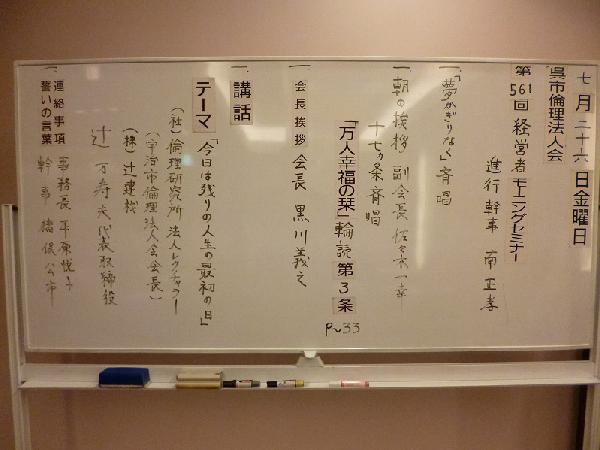 七月二十六日金曜日
呉市倫理法人会
第561回 経営者モーニングセミナー
進行 幹事 南 正孝
一「夢かぎりなく」斉唱
一朝の挨拶 副会長 佐々木一幸
十七カ条斉唱
「万人幸福の栞」輪読 第3条
P~33
一会長挨拶 会長 黒川義之
一講話
テーマ「今日は残りの人生の最初の日」
(社)倫理研究所 法人レクチャラー
(宇治市倫理法人会会長)
(株)辻建設
辻 万寿夫 代表取締役
一連絡事項 事務長 平原悦子
誓いの言葉 幹事